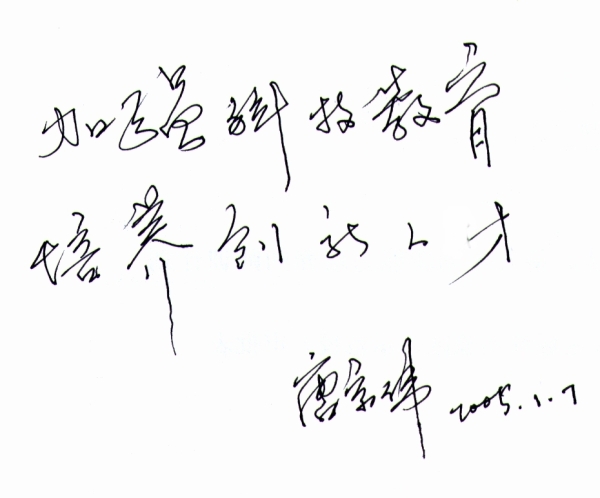 加强科技教育
培养创新人才
唐孝威 2005.1.7